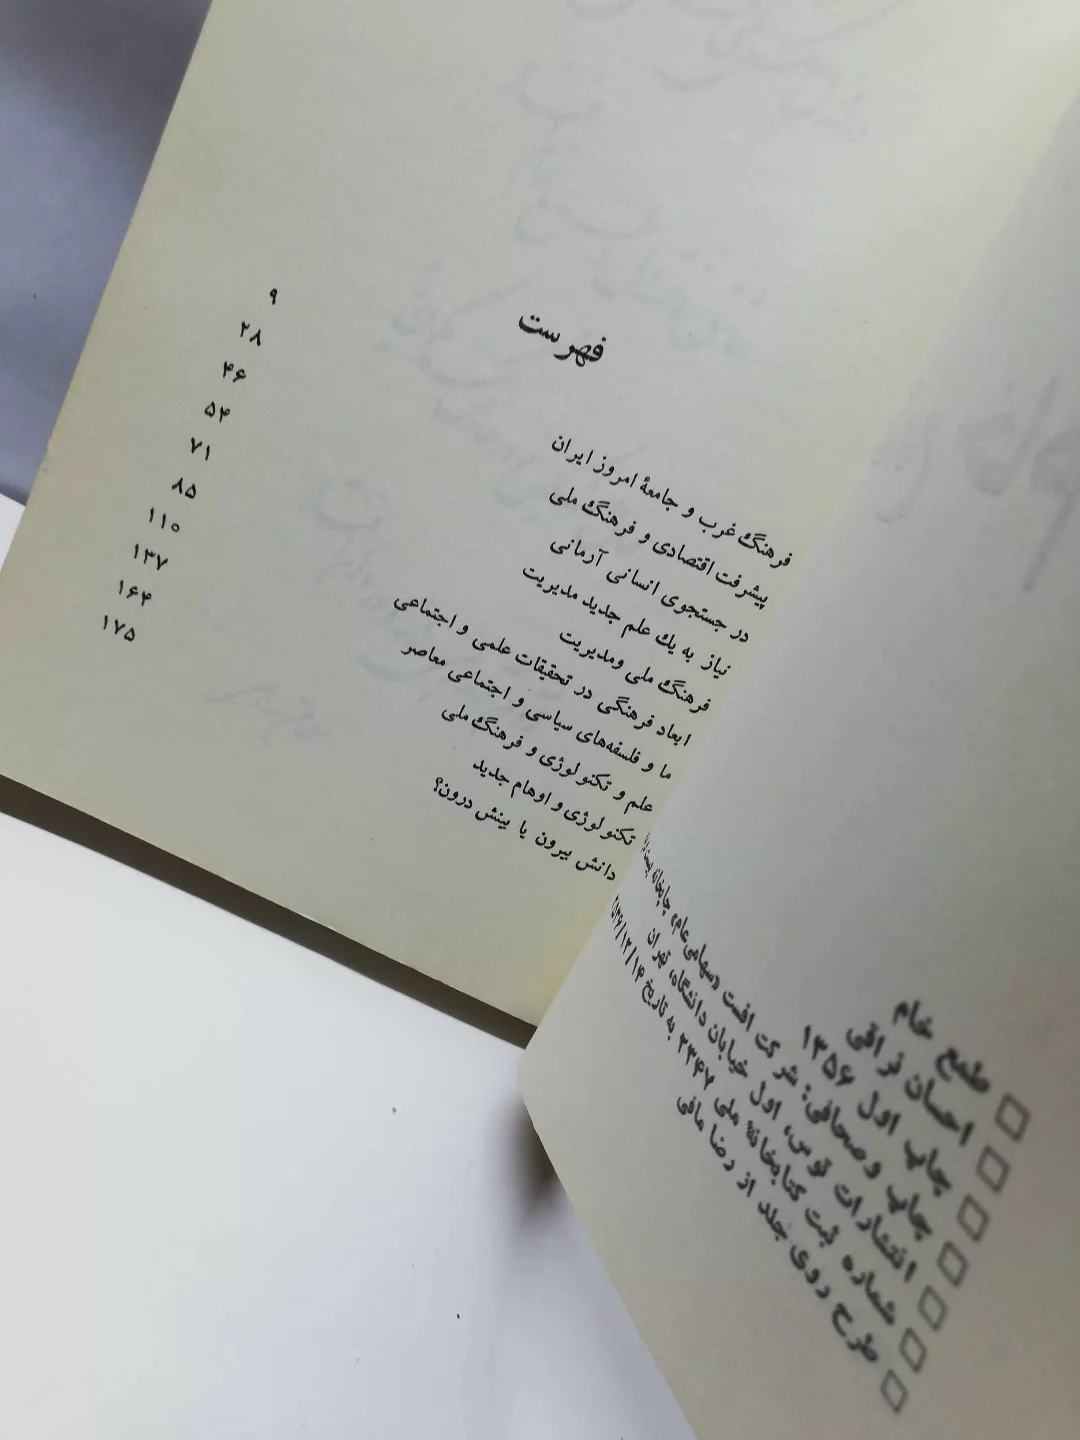 طمع خام
احسان نراقی
چاپ اول ۱۳۵۶
چاپ و صحافی: شرکت افست «سهامی عام» چاپخانه
انتشارات توس، اول خیابان دانشگاه، تهران
شماره ثبت کتابخانهٔ ملی ۲۳۴۷ به تاریخ ۲۵۳۶/۱۲/۱۴
طرح روی جلد از رضا مافی
فهرست
فرهنگ غرب و جامعهٔ امروز ایران ۹
پیشرفت اقتصادی و فرهنگ ملی ۲۸
در جستجوی انسانی آرمانی ۴۶
نیاز به یك علم جدید مدیریت ۵۴
فرهنگ ملی ومدیریت ۷۱
ابعاد فرهنگی در تحقیقات علمی و اجتماعی ۸۵
ما و فلسفه‌های سیاسی و اجتماعی معاصر ۱۱۰
علم و تکنولوژی و فرهنگ ملی ۱۳۷
تکنولوژی و اوهام جدید ۱۶۴
دانش بیرون یا بینش درون؟ ۱۷۵